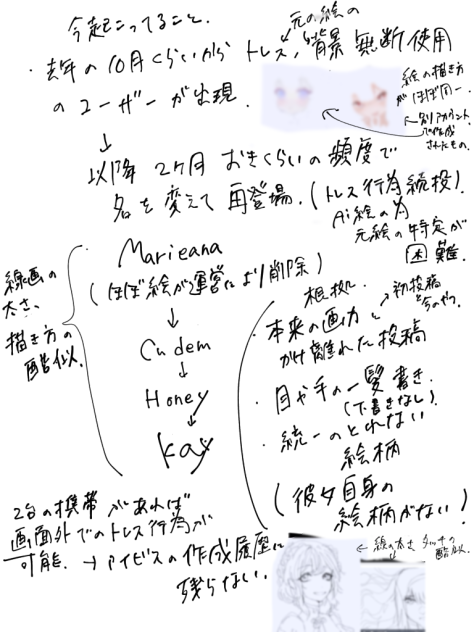 今起こってること。
元の絵の
・去年の10月くらいからトレス、背景無断使用
のユーザーが出現。
絵の描き方
がほぼ同一
←別アカウント
で作成
されたもの。
↓
以降2ケ月おきくらいの頻度で
名を変えて再登場。(トレス行為続投)
Ai絵の為
元絵の特定が
困難。
線画の
太さ、
描き方の
酷似。
・Marieana
(ほぼ絵が運営により削除)
↓
Cudem
↓
Honey
↓
kay
根拠
・本来の画力と
→初投稿
と今のやつ。
かけ離れた投稿
・目や手の一髪書き。
(下書きなし)
・統一のとれない
絵柄
(彼女自身の
絵柄がない!)
2台の携帯があれば
画面外でのトレス行為が
可能。→アイビスの作成履歴に
残らない。
←線の太さ タッチの
酷似。